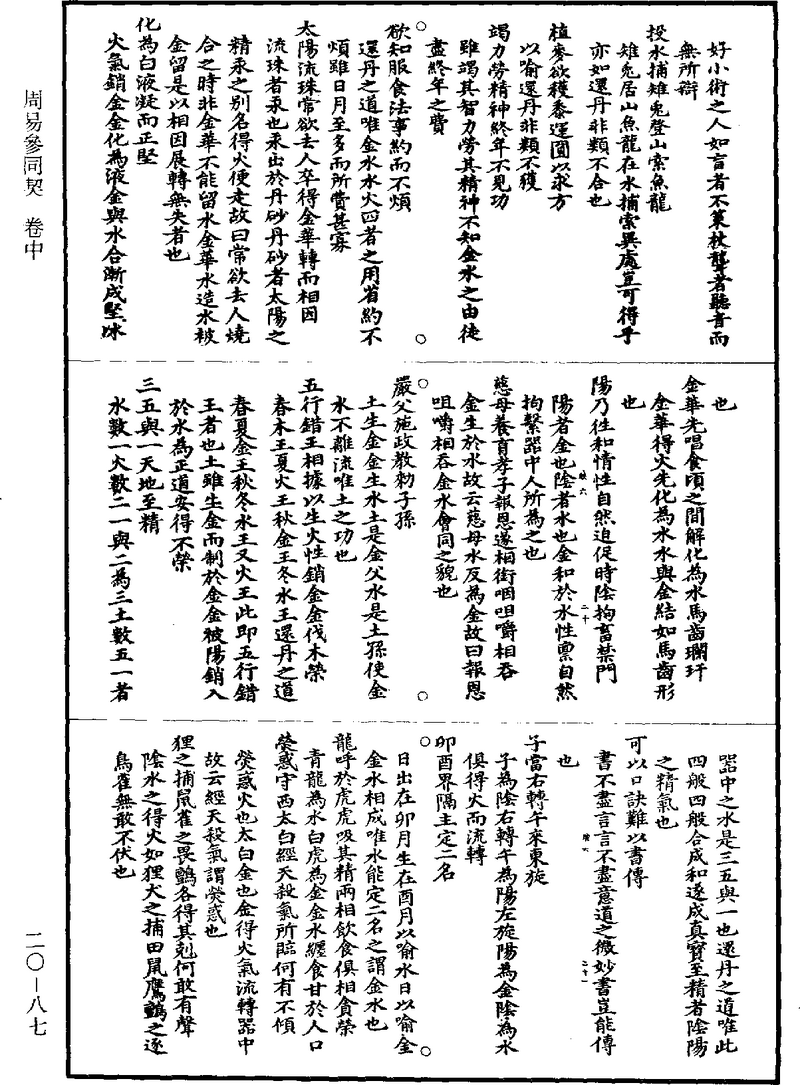 周易參同契　卷中
二〇—八七
好小術之人如盲者不策杖聾者聽音而
無所辯
投水捕雉兔登山索魚龍
雉兔居山魚龍在水捕索異處豈可得乎
亦如還丹非類不合也
植麥欲穫黍運圓以求方
以喻還丹非類不獲
竭力勞精神終年不見功
雖竭其智力勞其精神不知金水之由徒
盡終年之費
欲知服食法事約而不煩
還丹之道唯金水水火四者之用省約不
煩雖日月至多而所費甚寡
太陽流珠常欲去人卒得金華轉而相因
流珠者汞也汞出於丹砂丹砂者太陽之
精汞之別名得火便走故曰常欲去人燒
合之時非金華不能留水金華水造水被
金留是以相因展轉無失者也
化為白液凝而正堅
火氣銷金金化為液金與水合漸成堅冰
也
金華先唱食頃之間解化為水馬齒瓓玕
金華得火先化為水水與金結如馬齒形
也
陽乃往和情性自然迫促時陰拘畜禁門
陽者金也陰者水也金和於水性稟自然
拘繫器中人所為之也
慈母養育孝子報恩遂相銜咽咀嚼相吞
金生於水故云慈母水反為金故曰報恩
咀嚼相吞金水會同之貌也
嚴父施政教勑子孫
土生金金生水土是金父水是土孫使金
水不離流唯土之功也
五行錯王相據以生火性銷金金伐木榮
春木王夏火王秋金王冬水王還丹之道
春夏金王秋冬水王又火王此即五行錯
王者也土雖生金而制於金金被陽銷入
於水為正道安得不榮
三五與一天地至精
水數一火數二一與二為三土數五一者
器中之水是三五與一也還丹之道唯此
四般四般合成和遂成真寶至精者陰陽
之精氣也
可以口訣難以書傳
書不盡言言不盡意道之微妙書豈能傳
也
子當右轉午來東旋
子為陰右轉午為陽左旋陽為金陰為水
俱得火而流轉
卯酉界隔主定二名
日出在卯月生在酉月以喻水日以喻金
金水相成唯水能定二名之謂金水也
龍呼於虎虎吸其精兩相飲食俱相貪榮
青龍為水白虎為金金水纏食甘於人口
熒惑守西太白經天殺氣所臨何有不傾
熒惑火也太白金也金得火氣流轉器中
故云經天殺氣謂熒惑也
狸之捕鼠雀之畏鸇各得其剋何敢有聲
陰水之得火如狸犬之捕田鼠鷹鸇之逐
鳥雀無敢不伏也